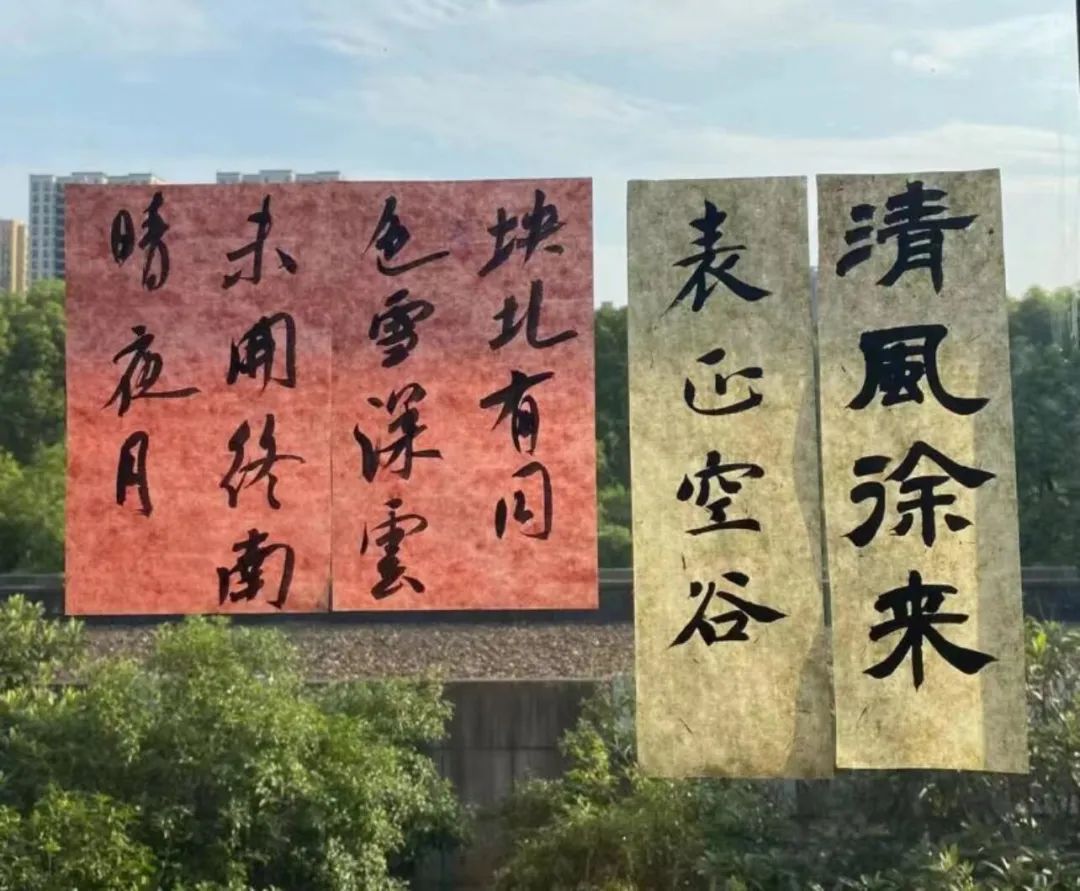 清風徐来
表正空谷
块北有同
色雪深雲
未開終南
晴夜月